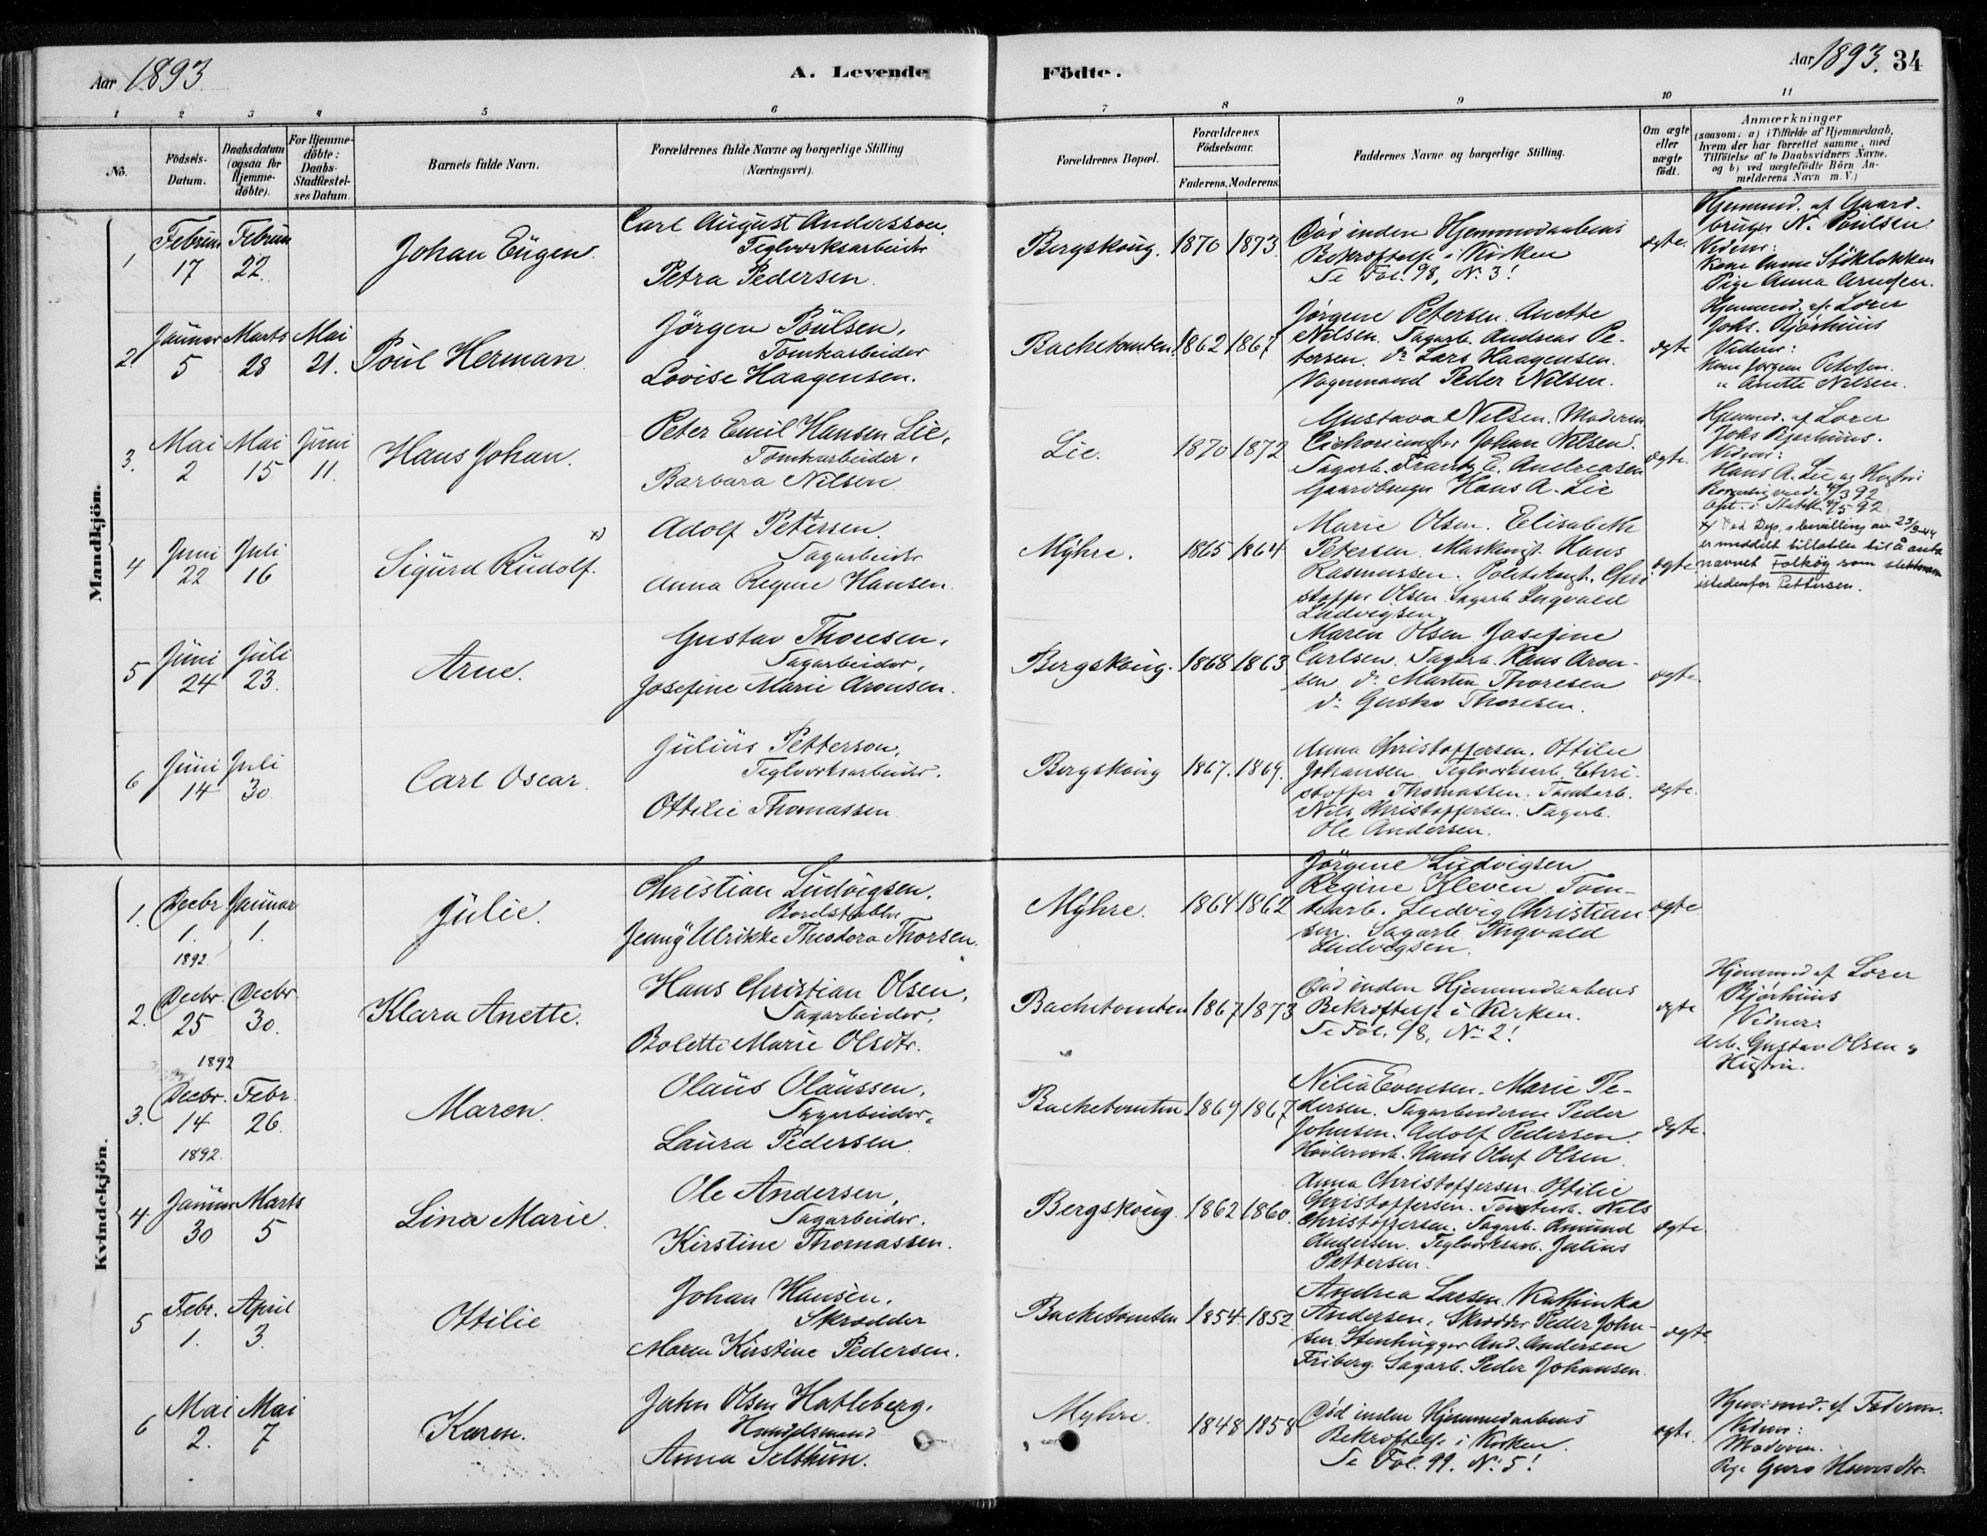 Aar 1893.
A. Levende Födte.
Aar 1893. 34
1 2 3 4 5 6 7 8 9 10 11
No.
Födsels-Datum.
Daabsdatum (ogsaa for Hjemme-döbte).
For Hjemme-döbte: Daabs-Stadfæstel-ses Datum.
Barnets fulde Navn.
Forældrenes fulde Navne og borgerlige Stilling (Næringsvei).
Forældrenes Bopæl.
Forældrenes Födselsaar.
Faderens. Moderens.
Faddernes Navne og borgerlige Stilling.
Om ægte eller uægte födt.
Anmærkninger
(saasom: a) i Tilfælde af Hjemmedaab, hvem der har forrettet samme, med Tilföielse af to Daabsvidners Navne, og b) ved uægtefödte Börn An-melderens Navn m. V.)
Mandkjön.
1 Februar 17 Februar 22.
Johan Eugen.
Carl August Andersson.
Teglværksarbeider
Petra Pedersen.
Bergskoug. 1870 1873.
Död inden Hjemmedaabens
Bekræftelse i Kirken
Se Fol. 98, No. 3!
ægte.
Hjemmed. af Gaard-
bruger N. Poulsen
Vidner:
Kone Anne Stöklokken
Pige Anna Arnesen.
2. Januar 5 Marts 28 Mai 21.
Poul Herman.
Jörgen Poulsen,
Tomtearbeider
Lovise Haagensen.
Bachetomten. 1862 1867
Jörgine Petersen. Anette
Nilsen. Sagarb. Andreas Pe-
tersen. do Lars Haagensen.
Vognmand Peder Nilsen.
ægte
Hjemmed. af Lærer
Johs. Bjørhuus
Vidner:
Kone Jörgine Petersen.
" Anette Nilsen.
3. Mai 2 Mai 15 Juni 11.
Hans Johan.
Peter Emil Hansen Lie,
Tomtearbeider.
Barbara Nilsen
Lie. 1870 1872
Gustava Nilsen. Moderen
Johan Nilsen.
Sagarb. Frantz E. Andreasen
Gaardbruger Hans A. Lie
ægte.
Hjemmed. af Lærer
Johs Bjørhuus.
Vidner:
Hans A. Lie og Hustru
4 Juni 22 Juli 16
Sigurd Rudolf. x)
Adolf Petersen.
Sagarbeider
Anna Regine Hansen.
Myhre. 1865 1864
Marie Olsen. Elisabeth
Petersen. Hans
Rasmussen. Chri-
stoffer Olsen. Sagarb. Ingvald
Ludvigsen.
ægte.
x) Ved Dep.s bevilling av 23/9-44
er meddelt tillatelse til å anta
navnet Folkøy som slektsnavn
istedenfor Pettersen.
5 Juni 24 Juli 23.
Arne.
Gustav Thoresen,
Sagarbeider,
Josefine Marie Aronsen.
Bergskoug. 1868 1863
Maren Olsen. Josefine
Carlsen. Sagarb. Hans Aron-
sen. do. Martin Thoresen
do. Gustav Thoresen.
ægte.
6 Juni 14 Juli 30.
Carl Oscar.
Julius Petterson,
Teglværksarbeider.
Ottilie Thomassen
Bergskoug 1867. 1869.
Anna Christoffersen. Ottilie
Johansen. Teglværksarb. Chri-
stoffer Thomassen. Tomtarb.
Nils Christoffersen. Sagarb.
Ole Andersen.
ægte.
Kvindekjön.
1. Decbr 1. 1892. Januar 1.
Julie.
Christian Ludvigsen.
Bordstabler
Jenny Ulrikke Theodora Thorsen.
Myhre. 1864 1862
Jörgine Ludvigsen
Regine Kleven Tom-
tearb. Ludvig Christian
sen. Sagarb. Ingvald
Ludvigsen.
ægte
2. Decbr. 25 1892 Decbr 30.
Klara Anette.
Hans Christian Olsen,
Sagarbeider.
Bolette Marie Olsdtr.
Bachetomten 1867 1873
Död inden Hjemmedaabens
Bekræftelse i Kirken.
Se Fol. 98, No 2!
ægte
Hjemmed af Lærer
Bjørhuus
Vidner:
Arb. Gustav Olsen &
Hustru.
3. Decbr. 14 1892. Febr. 26.
Maren.
Olaus Olaussen,
Sagarbeider,
Laura Pedersen.
Bachetomten 1869 1867
Nilia Evensen. Marie Pe-
dersen. Sagarbeiderne Peder
Johnsen. Adolf Pedersen.
Høvleriarb. Hans Oluf Olsen.
ægte.
4 Januar 30 Marts 5
Lina Marie.
Ole Andersen,
Sagarbeider.
Kirstine Thomassen.
Bergskoug. 1862 1860.
Anna Christoffersen. Ottilie
Christoffersen. Tomtearb. Nils
Christoffersen. Sagarb. Amund
Andersen. Teglværksarb. Julius
Pettersen.
ægte
5 Febr. 1. April 3.
Ottilie
Johan Hansen.
Skrædder
Maren Kirstine Pedersen.
Bachetomten 1854 1852
Andrea Larsen. Kathinka
Andersen. Skrædder Peder John-
sen. Stenhugger And. Andersen
Friberg. Sagarb. Peder Johansen.
ægte
6 Mai 2. Mai 7
Karen.
John Olsen Hatleberg.
Handelsmand
Anna Selthun.
Myhre. 1848 1858
Död inden Hjemmedaabens
Bekræftelse i Kirken.
Se Fol. 99. No. 5!
ægte.
Hjemmed. af Faderen.
Vidner:
Moderen.
Pige Guro Hansdtr.